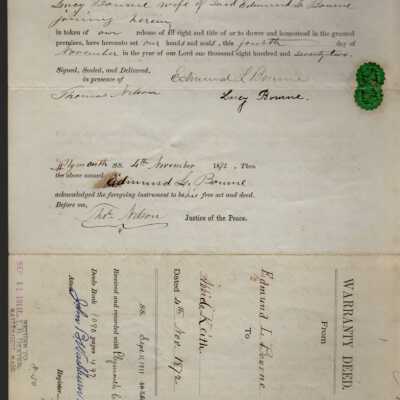 Lucy Bourne wife of said Edmund L. Bourne
joining herein
in token of our release of all right and title of or to dower and homestead in the granted
premises, have hereunto set our hands and seals, this fourth day of
November, in the year of our Lord one thousand eight hundred and seventy two.
Signed, Sealed, and Delivered,
in presence of
Thomas Nelson
Edmund L Bourne
Lucy Bourne.
Plymouth ss. 4th November 1872, Then
the above named Edmund L. Bourne
acknowledged the foregoing instrument to be his free act and deed.
Before me,
Thos. Nelson Justice of the Peace.
WARRANTY DEED.
From
Edmund L. Bourne
To
Keith.
Dated 4th Nov. 1872.
ss. Sept 11, 1911
Received and recorded with Plymouth
Deeds Book 1090 page 497
Attest
John B Washburn
Register.
RETURN TO